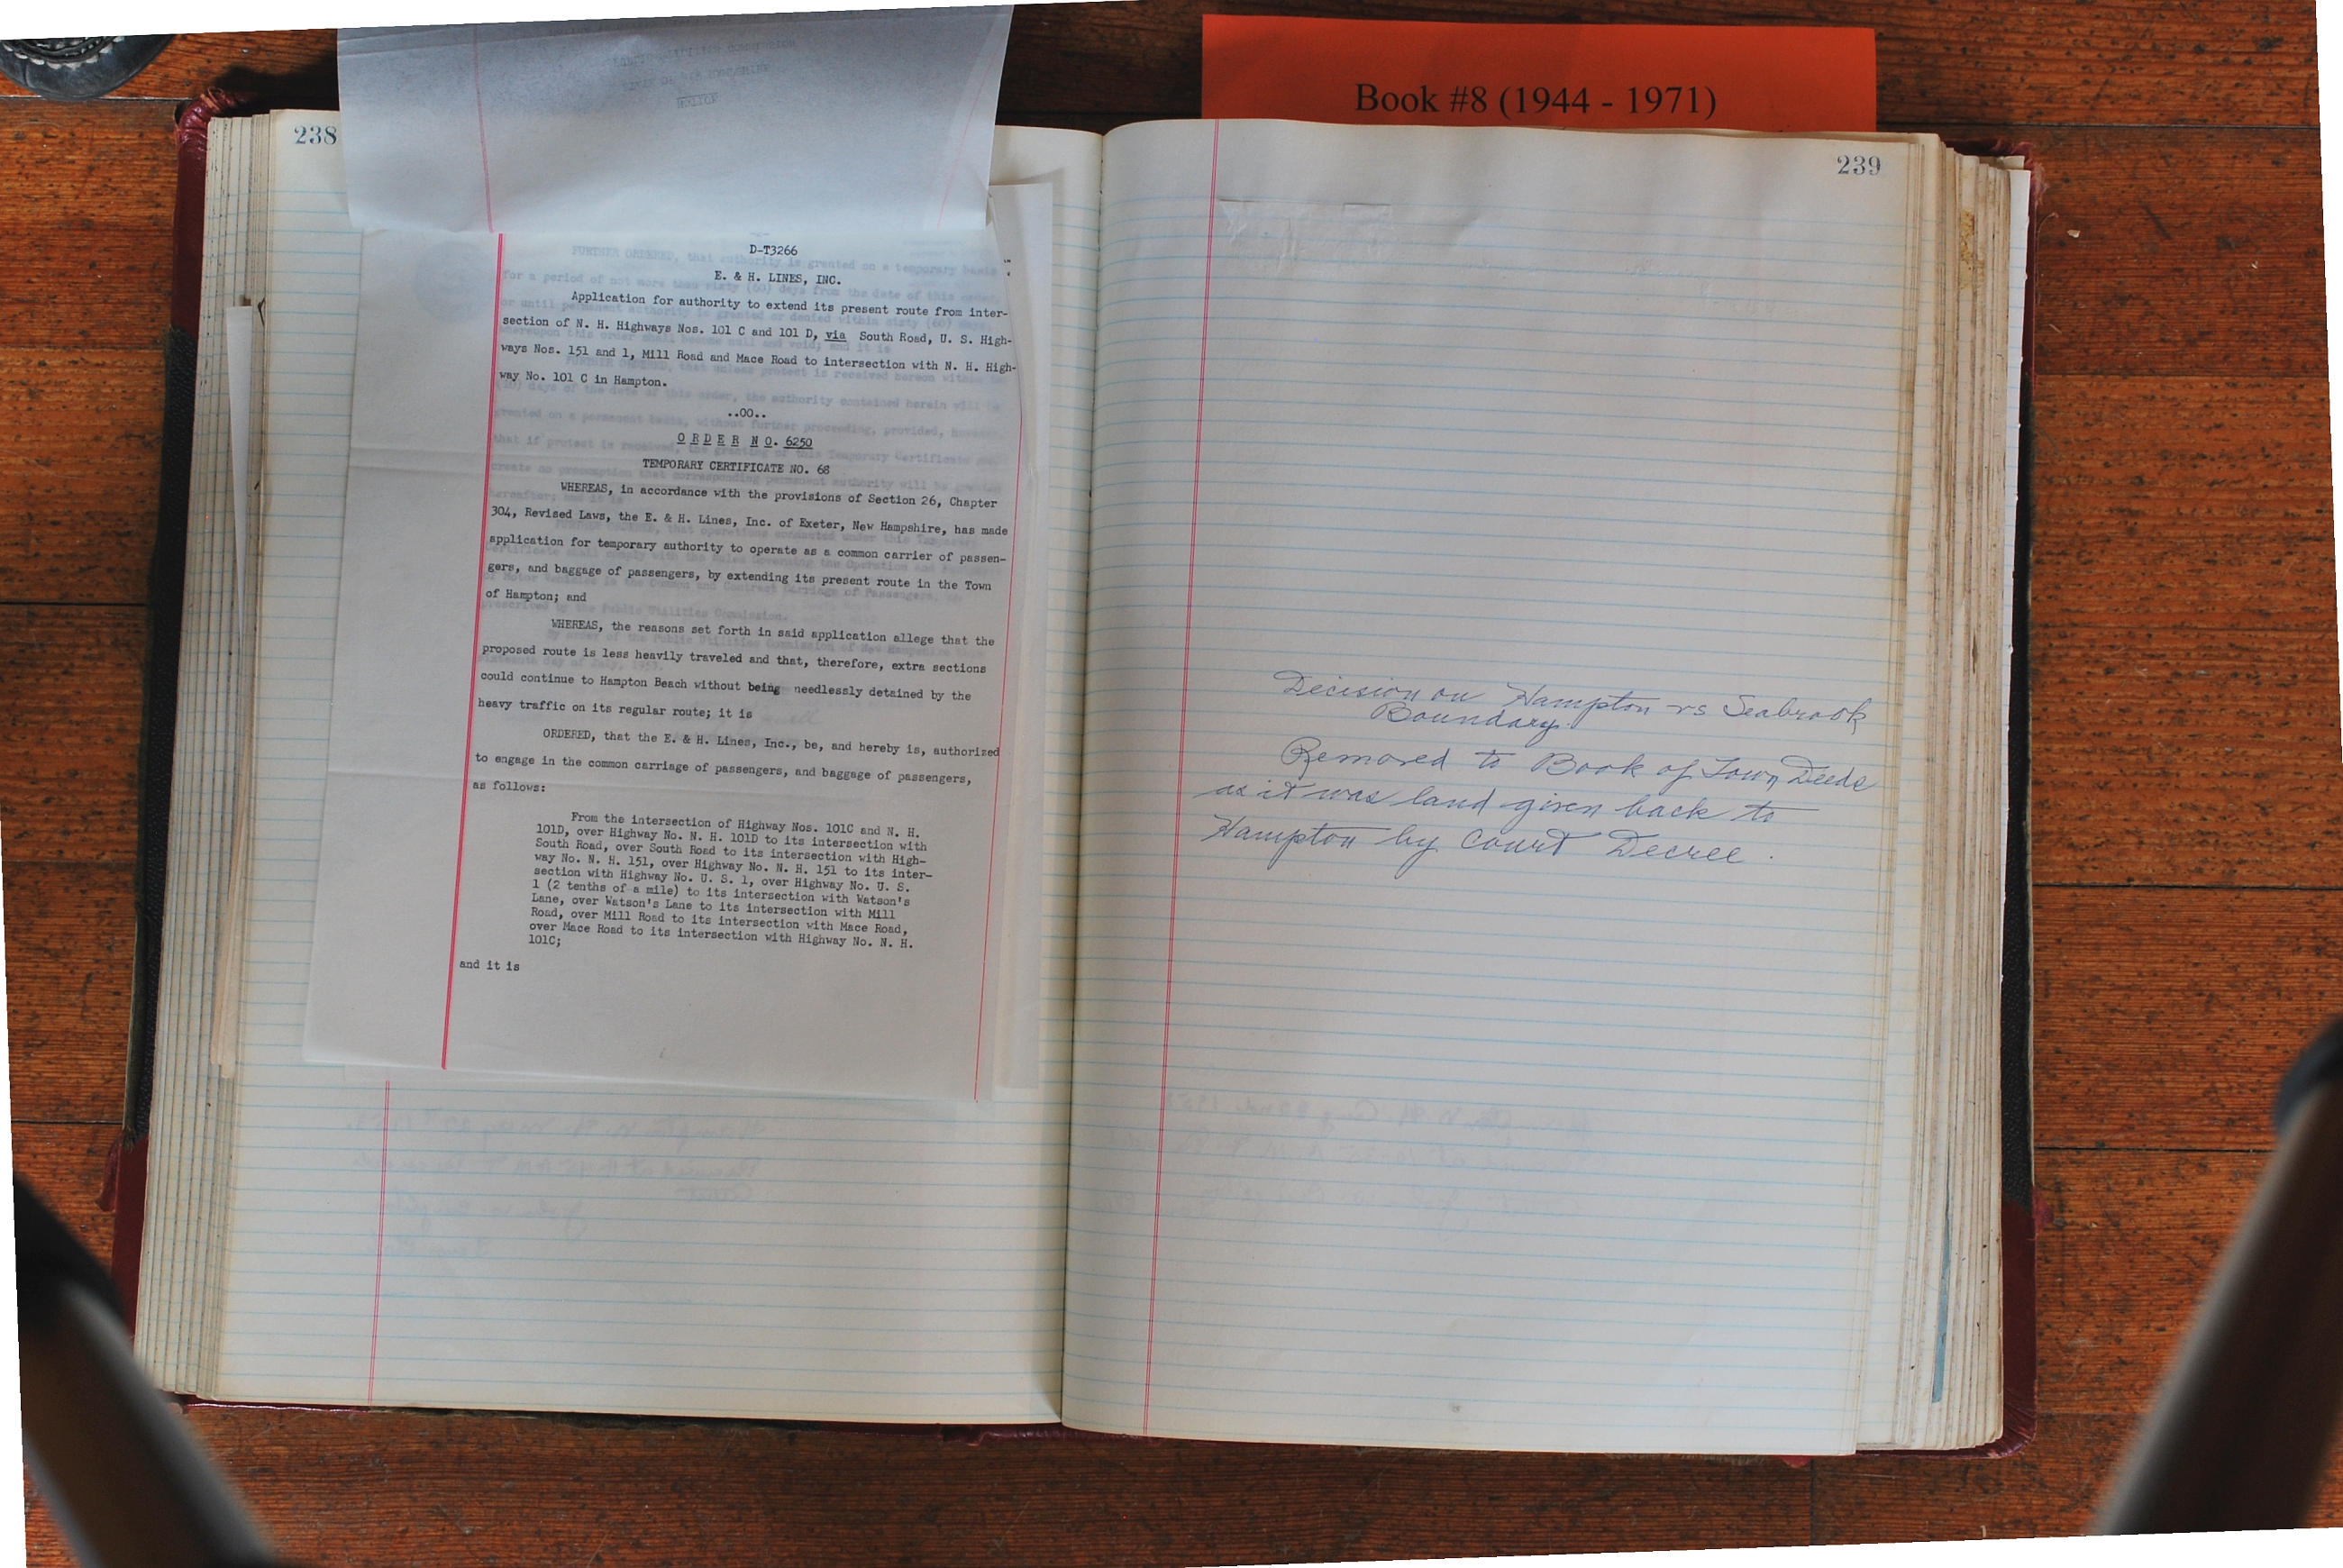 Book #8 (1944 - 1971)
238
D-T3266
E. & H. LINES, INC.
Application for authority to extend its present route from inter-
section of N. H. Highways Nos. 101 C and 101 D, via South Road, U. S. High-
ways Nos. 151 and 1, Mill Road and Mace Road to intersection with N. H. High-
way No. 101 C in Hampton.
..OO..
O R D E R N O. 6250
TEMPORARY CERTIFICATE NO. 68
WHEREAS, in accordance with the provisions of Section 26, Chapter
304, Revised Laws, the E. & H. Lines, Inc. of Exeter, New Hampshire, has made
application for temporary authority to operate as a common carrier of passen-
gers, and baggage of passengers, by extending its present route in the Town
of Hampton; and
WHEREAS, the reasons set forth in said application allege that the
proposed route is less heavily traveled and that, therefore, extra sections
could continue to Hampton Beach without being needlessly detained by the
heavy traffic on its regular route; it is
ORDERED, that the E. & H. Lines, Inc., be, and hereby is, authorized
to engage in the common carriage of passengers, and baggage of passengers,
as follows:
From the intersection of Highway Nos. 101C and N. H.
101D, over Highway No. N. H. 101D to its intersection with
South Road, over South Road to its intersection with High-
way No. N. H. 151, over Highway No. N. H. 151 to its inter-
section with Highway No. U. S. 1, over Highway No. U. S.
1 (2 tenths of a mile) to its intersection with Watson's
Lane, over Watson's Lane to its intersection with Mill
Road, over Mill Road to its intersection with Mace Road,
over Mace Road to its intersection with Highway No. N. H.
101C;
and it is
239
Decision on Hampton vs Seabrook
Boundary.
Removed to Book of Town Deeds
as it was land given back to
Hampton by Court Decree.